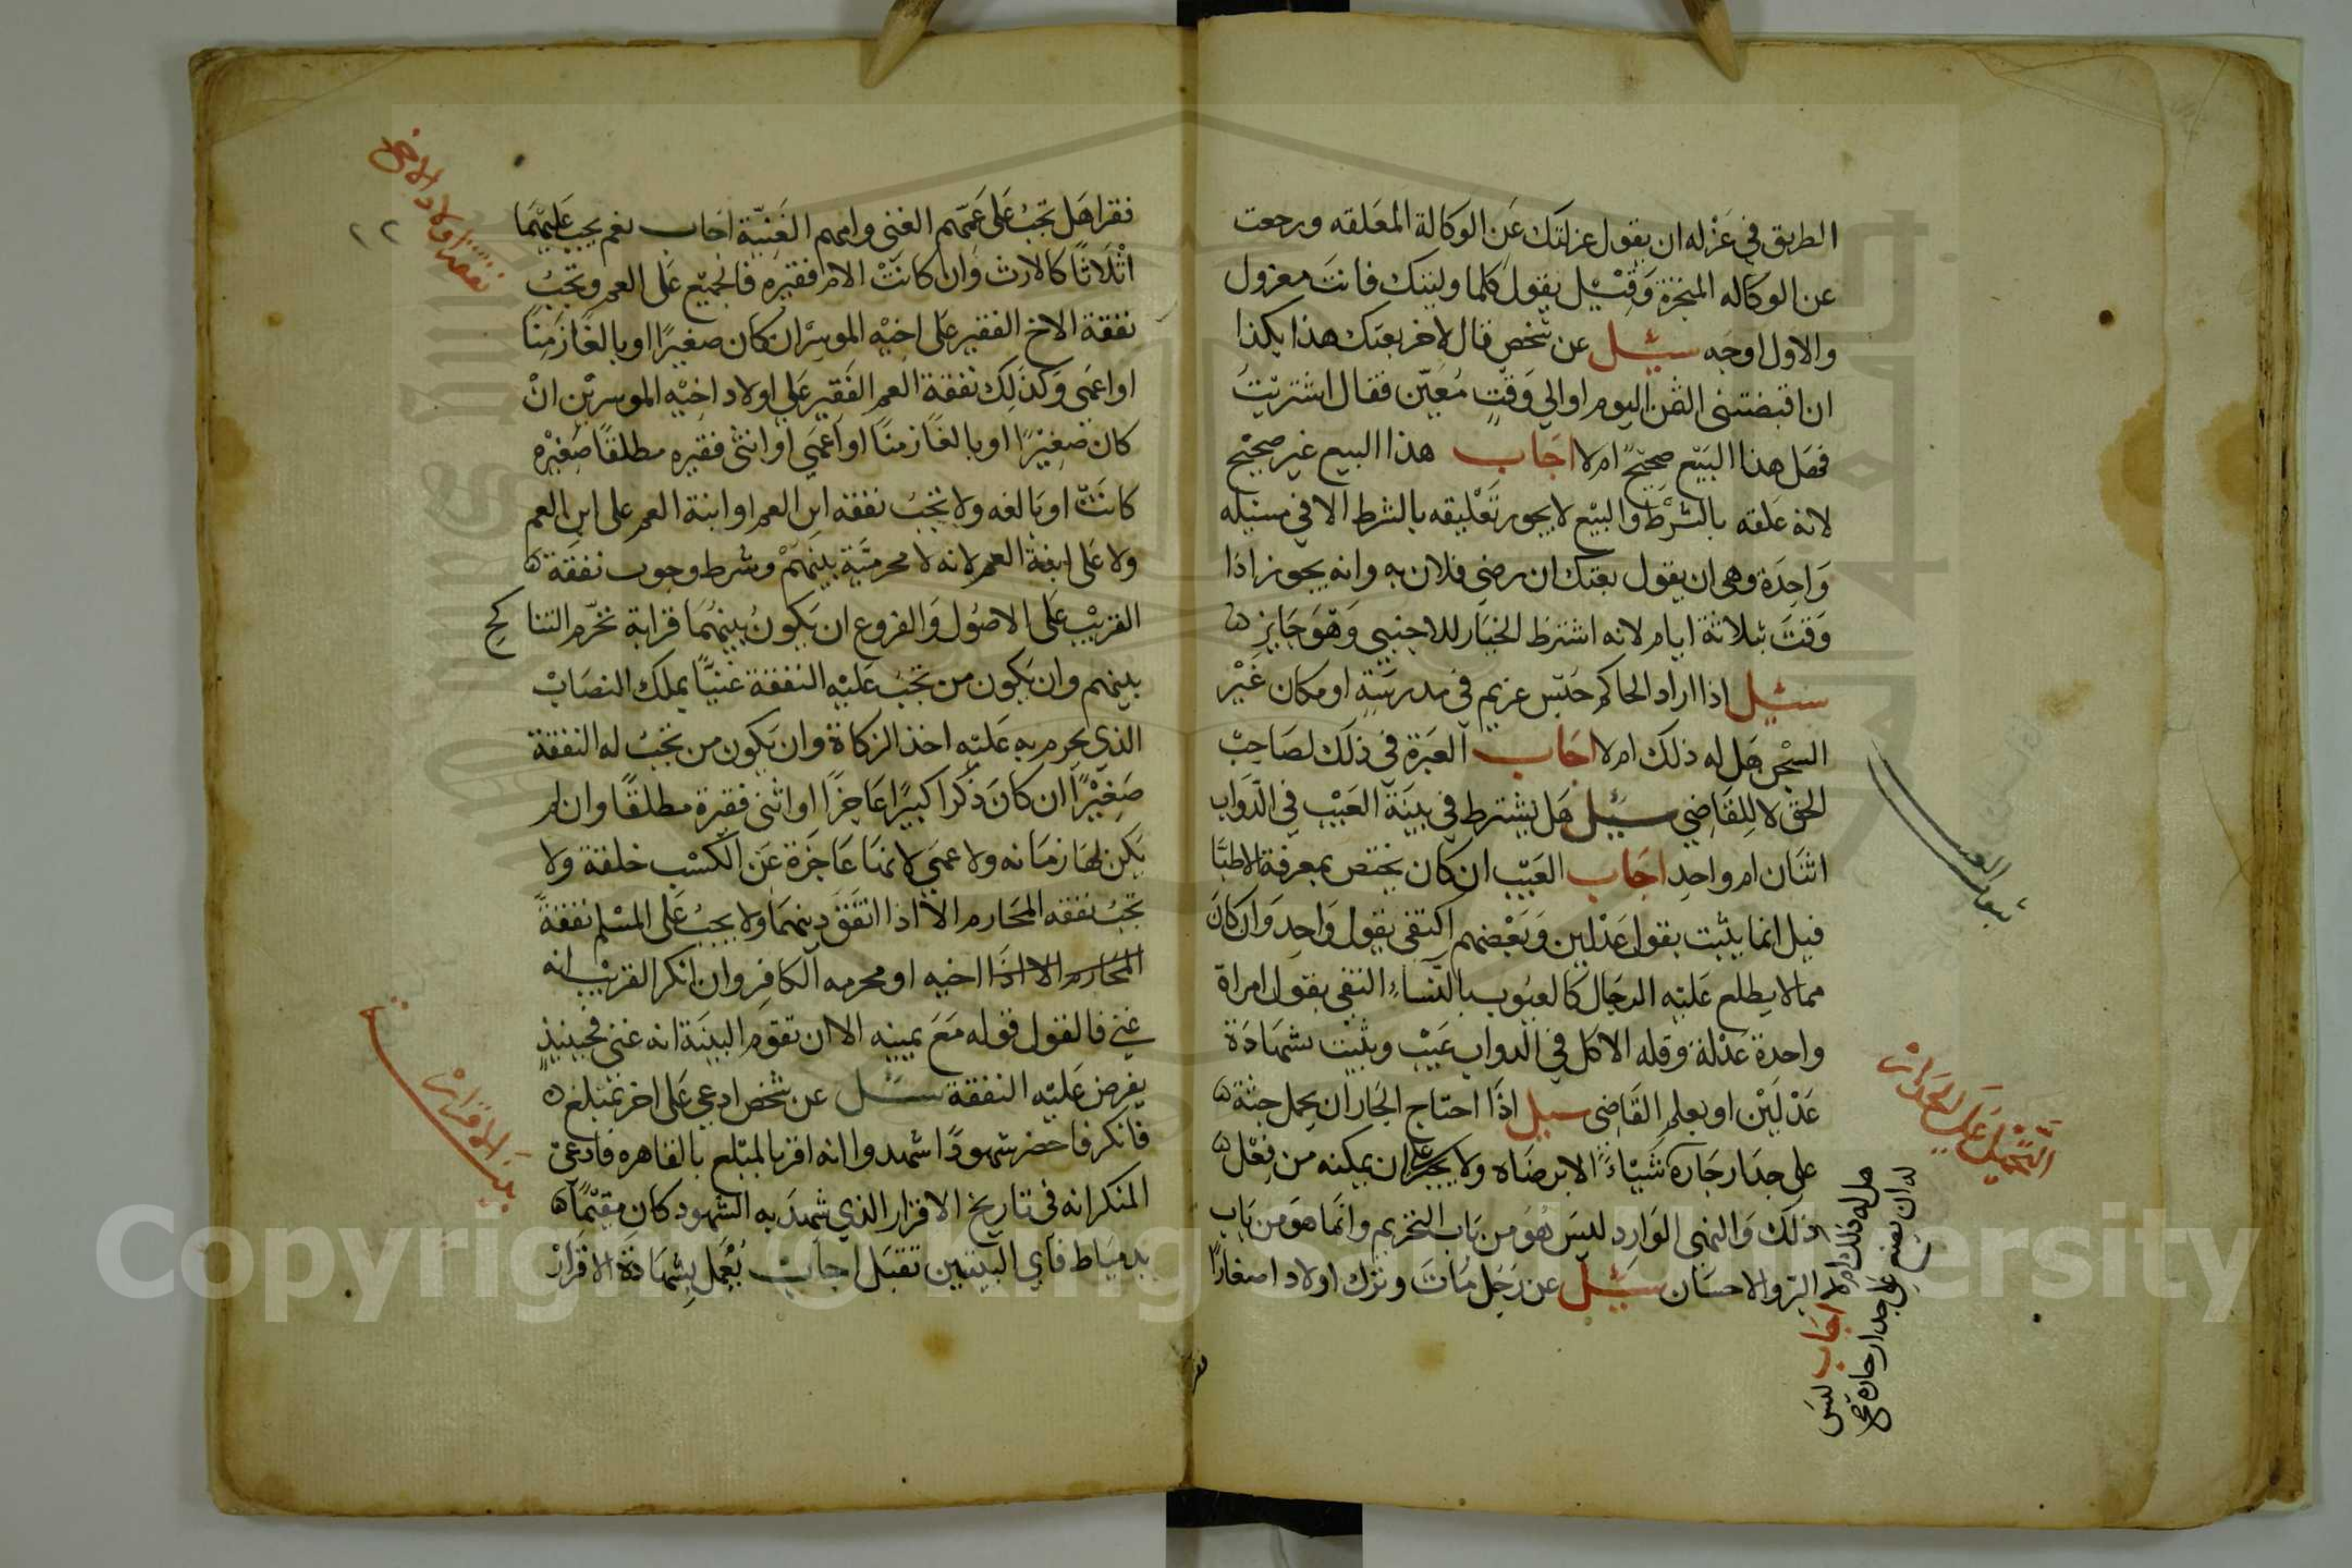 الطريق في عزله ان يقول عزلتك عن الوكالة المعلقه ورجعت
عن الوكاله المنجزة وقيل يقول كلما وليتك فانت معزول
والاول اوجه سئيل عن شخص قال لاخر بعتك هذا بكذا
ان اقبضتنى الثمن اليوم او الي وقت معين فقال اشتريت
فهل هذا البيع صحيح ام لا اجاب هذا البيع غير صحيح
لانه علقه بالشرط والبيع لا يجوز تعليقه بالشرط الا في مسئله
واحدة وهى ان يقول بعتك ان رضى فلان به وانه يجوز اذا
وقت بثلاثة ايام لانه اشترط الخيار للاجنبي وهو جايز
سئيل اذا اراد الحاكم حبس غريم في مدرسة او مكان غير
السجن هل له ذلك ام لا اجاب العبرة في ذلك لصاحب
الحق لا للقاضي سئيل هل يشترط في بينة العيب في الدواب
اثنان ام واحد اجاب العيب ان كان يختص بمعرفة الاطبا
قيل انما يثبت بقول عدلين وبعضهم اكتفى بقول واحد وان كان
مما لا يطلع عليه الرجال كالعيوب بالنساء التقى بقول امراة
واحدة عدلة وقله الاكل في الدواب عيب ويثبت بشهادة
عدلين او بعلم القاضى سيل اذا احتاج الجار ان يحمل جثة
على جدار جاره شيئاء الا برضاه ولا يجبر على ان يمكنه من فعل
ذلك والنهى الوارد ليس هو من باب التحريم وانما هو من باب
البر والاحسان سئيل عن رجل مات وترك اولاد اصغارا
التحميل على الجدران
هل له ذلك ام لا اجاب ليس
له ان يضع على جدار جاره صح
فقرا هل تجب على عمهم الغنى وامهم الغنية اجاب نعم يجب عليهما
اثلاثا كالارث وان كانت الام فقيره فالجميع على العم وتجب
نفقة الاخ الفقير على اخيه الموسر ان كان صغيرا او بالغا زمنا
او اعمى وكذلك نفقة العم الفقير علي اولاد اخيه الموسرين ان
كان صغيرا او بالغا زمنا او اعمى او انثى فقيره مطلقا صغيره
كانت او بالغه ولا تجب نفقه ابن العم او ابنة العم على ابن العم
ولا على ابنة العم لانه لا محرمية بينهم وشرط وجوب نفقة
القريب على الاصول والفروع ان يكون بينهما قرابة تحرم التناكح
بينهم وان يكون من تجب عليه النفقة غنيا يملك النصاب
الذي يحرم به عليه اخذ الزكاة وان يكون من تجب له النفقة
صغيرا ان كان ذكرا كبيرا عاجزا او انثى فقيرة مطلقا وان لم
يكن لها زمانه ولا عمي لانها عاجزة عن الكسب خلقة ولا
تجب نفقه المحارم الا اذا اتفق دينهما ولا يجب على المسلم نفقة
المحارم الا اذا اخيه او محرمه الكافر وان انكر القريب انه
غني فالقول قوله مع يمينه الا ان تقوم البينة انه غنى فحينيذ
يفرض عليه النفقة سئل عن شخص ادعى على اخر بمبلغ
فانكر فاحضر شهودا شهدوا انه اقر بالمبلغ بالقاهره فادعى
المنكر انه في تاريخ الاقرار الذي شهد به الشهود كان مقيما
بدمياط فاي البينتين تقبل اجاب يعمل بشهادة الاقرار
٢٢